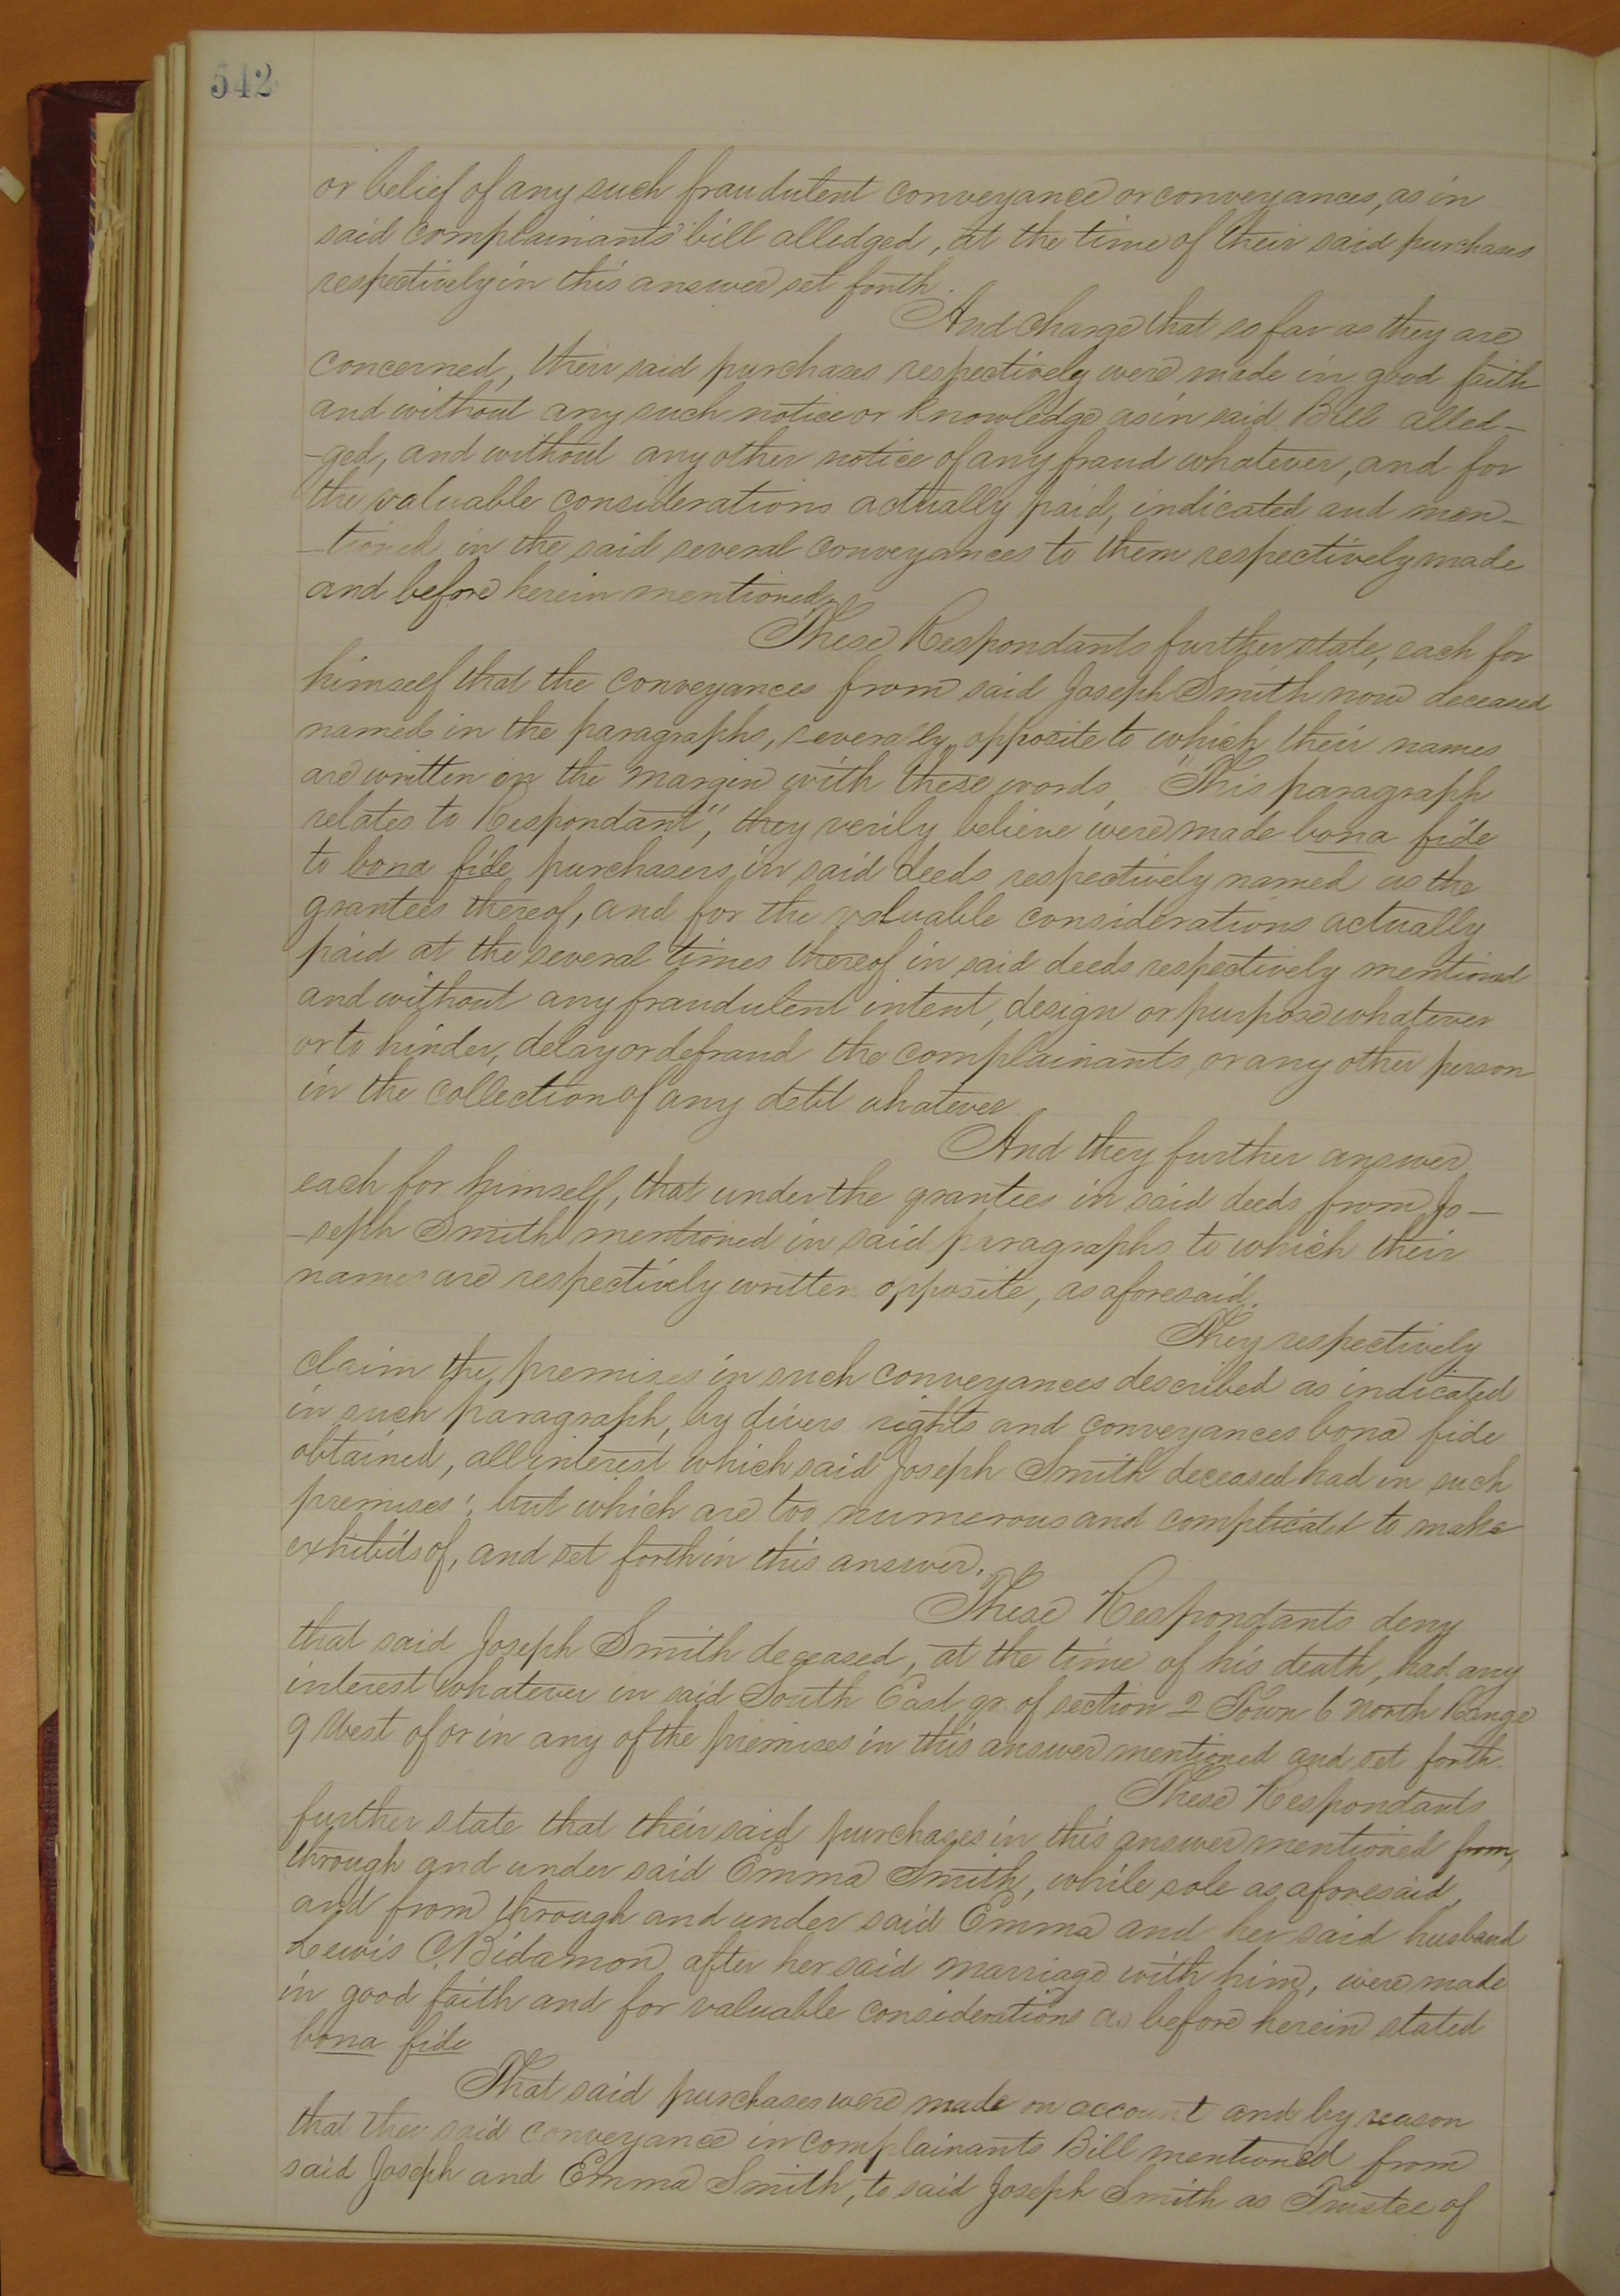 542
or belief of any such fraudulent conveyance or conveyances, as in
said complainants' bill alledged, at the time of their said purchases
respectively in this answer set forth.
And charge that so far as they are
concerned, their said purchases respectively were made in good faith
and without any such notice or knowledge as in said Bill alled-
-ged, and without any other notice of any fraud whatever, and for
the valuable considerations actually paid, indicated and men-
-tioned in the said several conveyances to them respectively made
and before herein mentioned.
These Respondants further state, each for
himself that the conveyances from said Joseph Smith now deceased
named in the paragraphs, severally, opposite to which their names
are written on the margin with these words, "This paragraph
relates to Respondant", they verily believe were made bona fide
to bona fide purchasers in said deeds respectively named as the
grantees thereof, and for the valuable considerations actually
paid at the several times thereof in said deeds respectively mentioned
and without any fraudulent intent, design or purpose whatever
or to hinder, delay or defraud the complainants or any other person
in the collection of any debt whatever.
And they further answer
each for himself, that under the grantees in said deeds from Jo-
-seph Smith mentioned in said paragraphs to which their
names are respectively written opposite, as aforesaid.
They respectively
claim the premises in such conveyances described as indicated
in such paragraph, by divers rights and conveyances bona fide
obtained, all interest which said Joseph Smith deceased had in such
premises; but which are too numerous and complicated to make
exhibits of, and set forth in this answer.
These Respondants deny
that said Joseph Smith deceased, at the time of his death, had any
interest whatever in said South East qr. of section 2 Town 6 North Range
9 West of or in any of the premises in this answer mentioned and set forth.
These Respondants
further state that their said purchases in this answer mentioned from,
through and under said Emma Smith, while sole as aforesaid,
and from through and under said Emma and her said husband
Lewis C. Bidamon after her said marriage with him, were made
in good faith and for valuable considerations as before herein stated
bona fide
That said purchases were made on account and by reason
that the said conveyance in complainants Bill mentioned from
said Joseph and Emma Smith, to said Joseph Smith as Trustee of